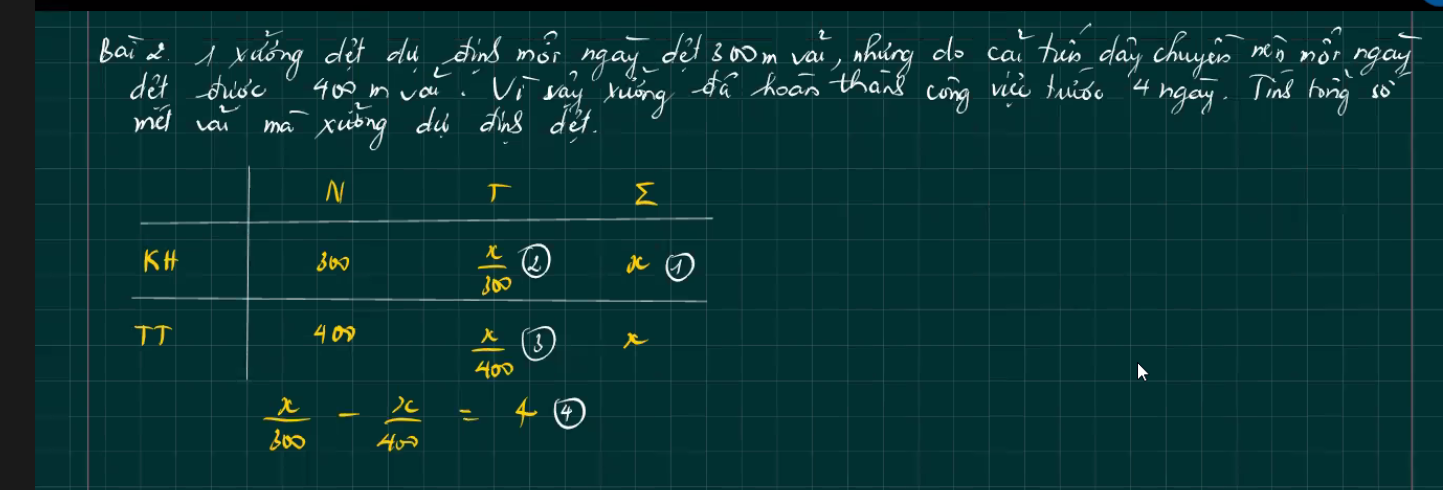 Bài 2. 1 xưởng dệt dự định mỗi ngày dệt 300m vải, nhưng do cải tiến dây chuyền nên mỗi ngày
dệt được 400 m vải. Vì vậy xưởng đã hoàn thành công việc trước 4 ngày. Tính tổng số
mét vải mà xưởng dự định dệt.
N T Σ
KH 300 x/300 ② x ①
TT 400 x/400 ③ x
x/300 - x/400 = 4 ④